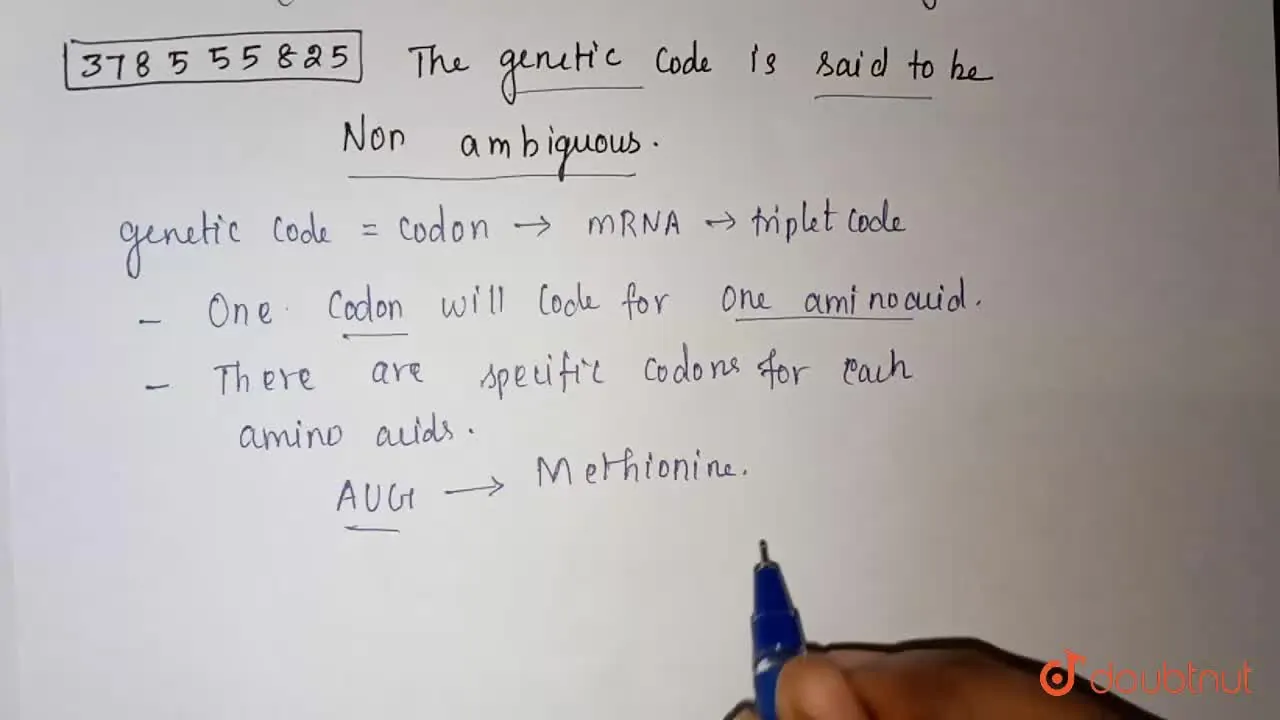 378555825 The genetic code is said to be
Non ambiguous.
genetic code = codon → mRNA → triplet code
- One codon will code for one aminoacid.
- There are specific codons for each
amino acids.
AUG → Methionine.
doubtnut